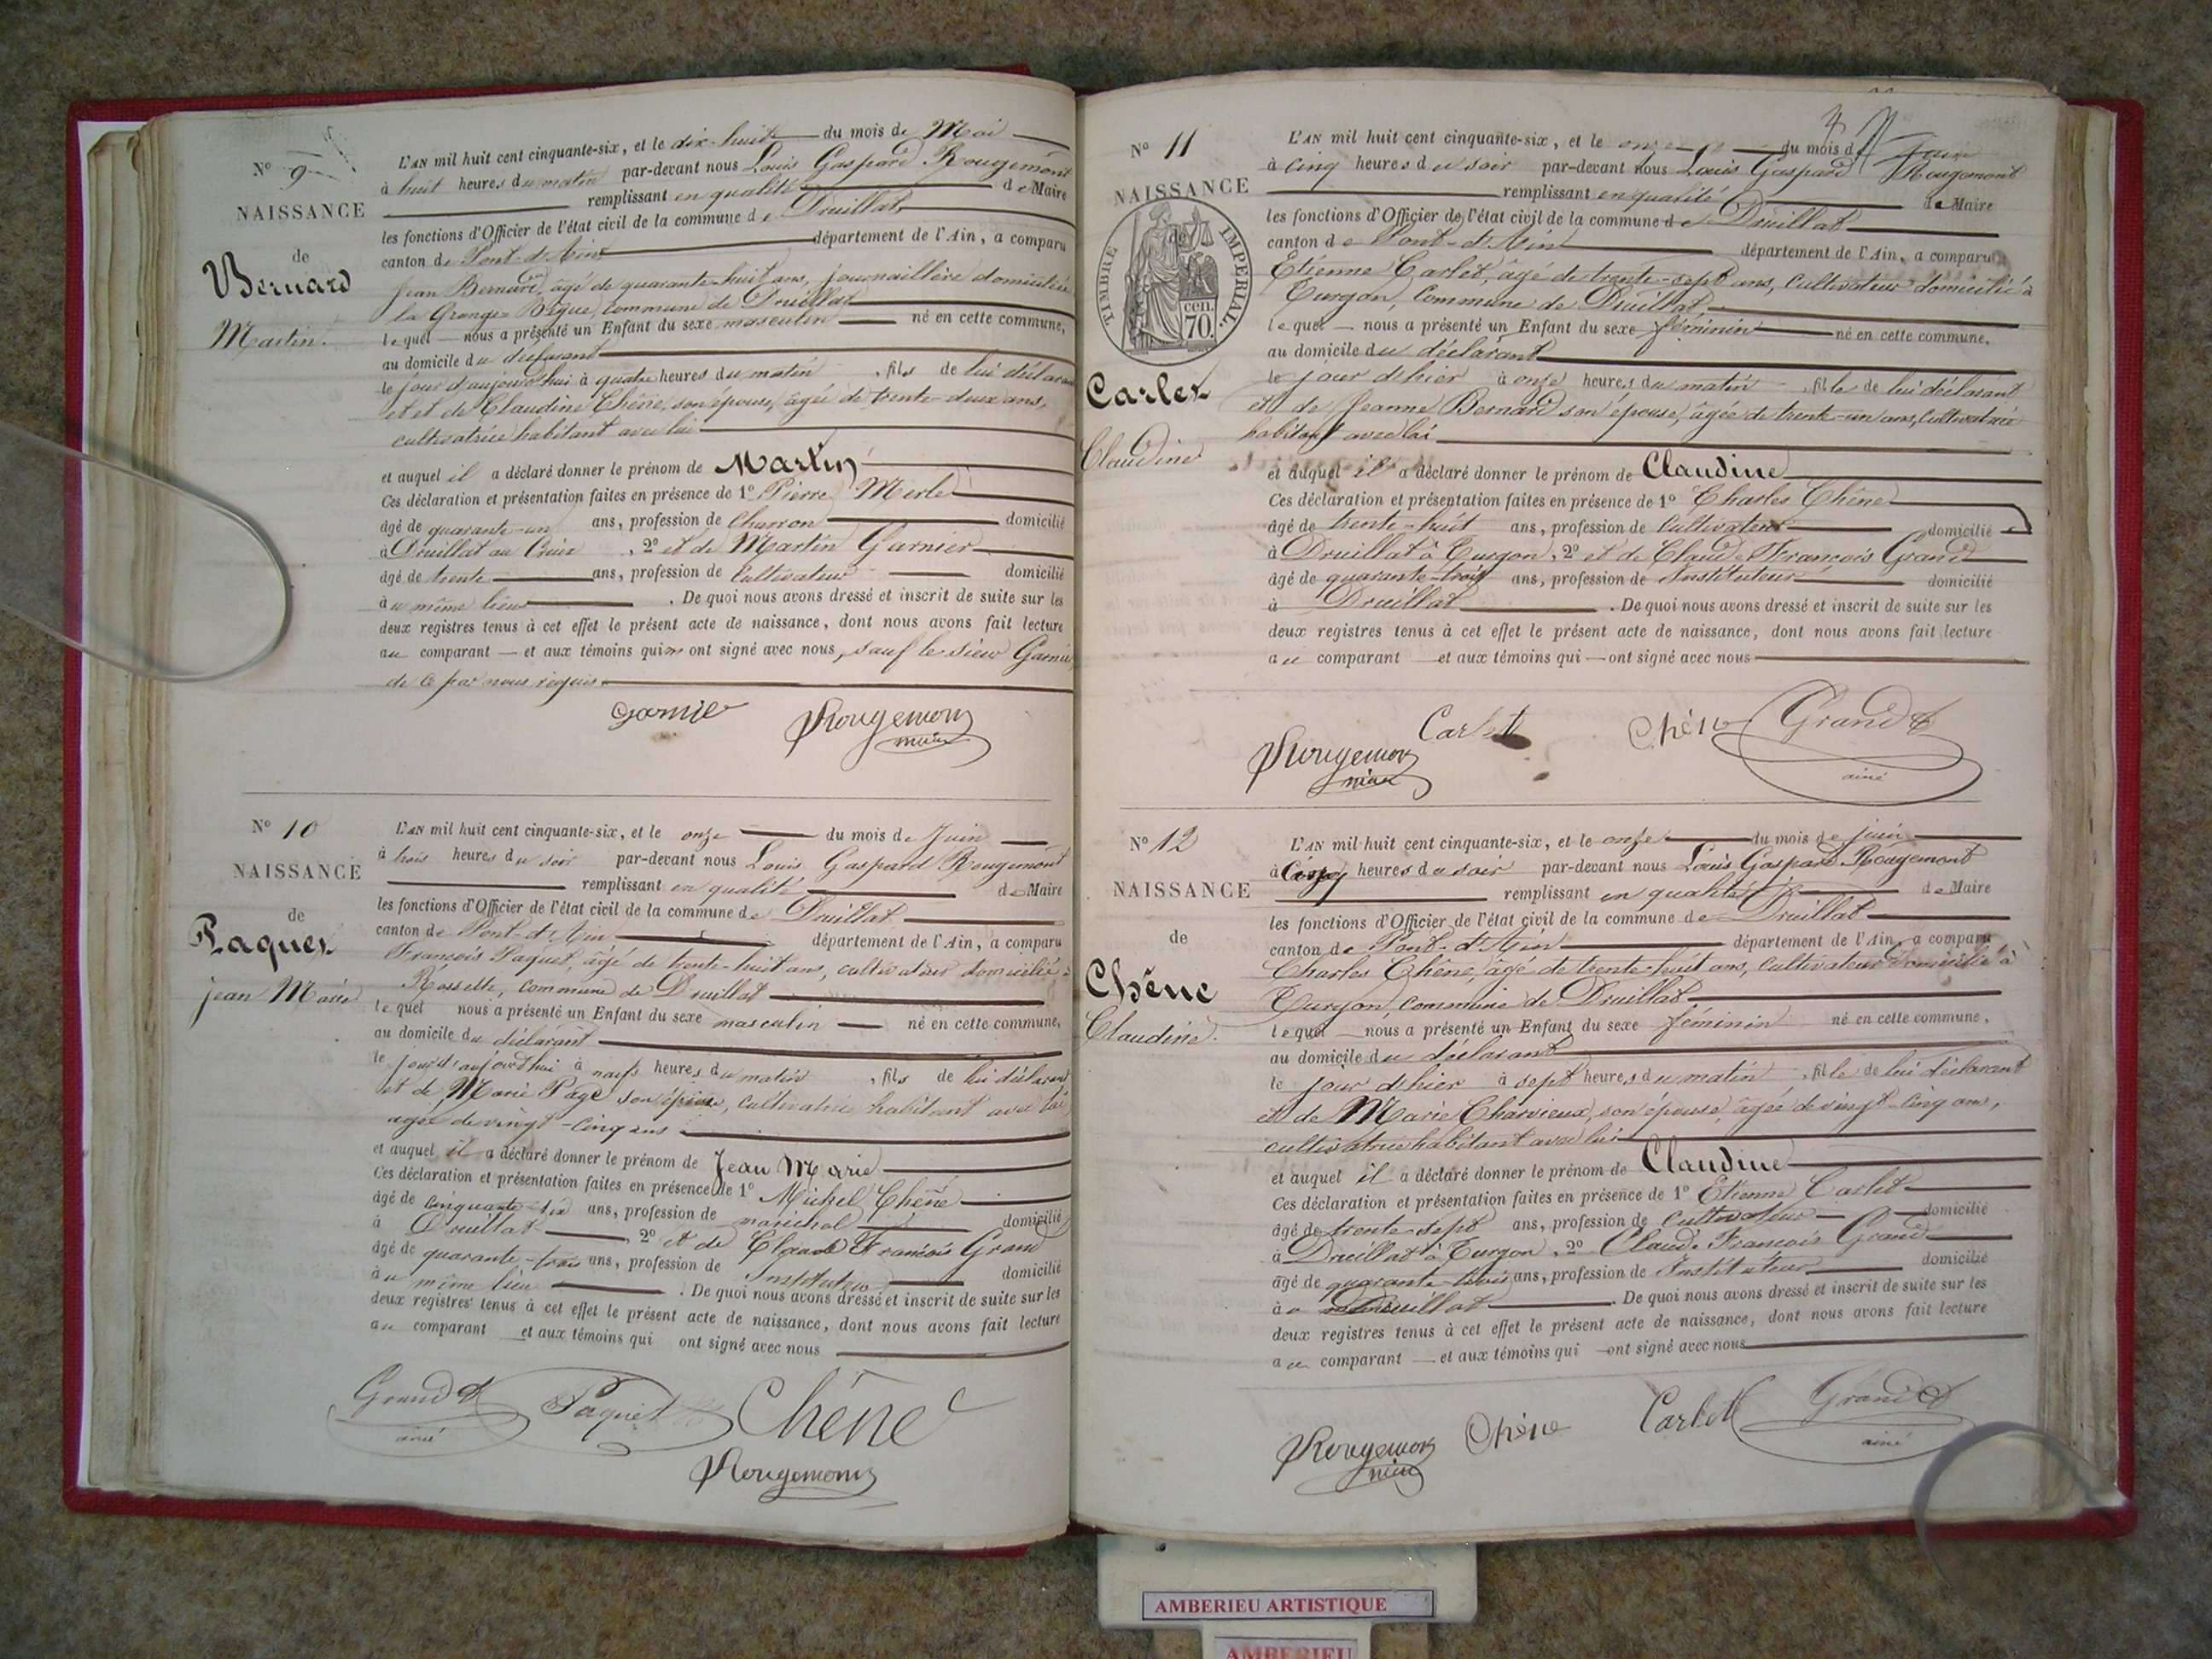 N° 9
NAISSANCE
de
Bernard
Martin.
L'AN mil huit cent cinquante-six, et le dix-huit du mois de Mai
à huit heures du matin par-devant nous Louis Gaspard Rougemont
remplissant en qualité de Maire
les fonctions d'Officier de l'état civil de la commune de Druillat
canton de Pont-d'Ain département de l'Ain, a comparu
Jean Bernard, âgé de quarante-huit ans, journaillère domicilié
la Grange commune de Druillat
lequel nous a présenté un Enfant du sexe masculin né en cette commune,
au domicile du déclarant
le jour d'aujourd'hui à quatre heures du matin, fils de lui déclarant
et et de Claudine Chêne, son épouse, âgée de trente-deux ans,
cultivatrice habitant avec lui
et auquel il a déclaré donner le prénom de Martin
Ces déclaration et présentation faites en présence de 1° Pierre Merle
âgé de quarante-un ans, profession de Charron domicilié
à Druillat au , 2° et de Martin Garnier
âgé de trente ans, profession de Cultivateur domicilié
au même lieu . De quoi nous avons dressé et inscrit de suite sur les
deux registres tenus à cet effet le présent acte de naissance, dont nous avons fait lecture
au comparant — et aux témoins qui ont signé avec nous, sauf le sieur
de ce par nous requis
Garnie Rougemont
maire
N° 10
NAISSANCE
de
Paquet
jean Marie
L'AN mil huit cent cinquante-six, et le onze du mois de Juin
à trois heures du soir par-devant nous Louis Gaspard Rougemont
remplissant en qualité de Maire
les fonctions d'Officier de l'état civil de la commune de Druillat
canton de Pont-d'Ain département de l'Ain, a comparu
François Paquet, âgé de trente-huit ans, cultivateur domicilié à
Rossette, commune de Druillat
lequel nous a présenté un Enfant du sexe masculin né en cette commune,
au domicile du déclarant
le jour d'aujourd'hui à neuf heures du matin, fils de lui déclarant
et de Marie Page son épouse, cultivatrice habitant avec lui
agée de vingt-cinq ans
et auquel il a déclaré donner le prénom de Jean Marie
Ces déclaration et présentation faites en présence de 1° Michel Chêne
âgé de cinquante-six ans, profession de maréchal domicilié
à Druillat, 2° et de Claude François Grand
âgé de quarante-trois ans, profession de Instituteur domicilié
au même lieu . De quoi nous avons dressé et inscrit de suite sur les
deux registres tenus à cet effet le présent acte de naissance, dont nous avons fait lecture
au comparant et aux témoins qui ont signé avec nous
Grand Paquet Chêne
ainé
Rougemont
N° 11
NAISSANCE
de
TIMBRE IMPERIAL.
70 cen.
Carlet
Claudine
L'AN mil huit cent cinquante-six, et le onze du mois de Juin
à cinq heures du soir par-devant nous Louis Gaspard Rougemont
remplissant en qualité de Maire
les fonctions d'Officier de l'état civil de la commune de Druillat
canton de Pont-d'Ain département de l'Ain, a comparu
Etienne Carlet, âgé de trente-sept ans, cultivateur domicilié à
Turgon, Commune de Druillat
lequel — nous a présenté un Enfant du sexe féminin né en cette commune,
au domicile du déclarant
le jour d'hier à onze heures du matin, fille de lui déclarant
et de Jeanne Bernard son épouse, âgée de trente-un ans, cultivatrice
habitant avec lui
et auquel il a déclaré donner le prénom de Claudine
Ces déclaration et présentation faites en présence de 1° Charles Chêne
âgé de trente-huit ans, profession de Cultivateur domicilié
à Druillat à Turgon, 2° et de Claude François Grand
âgé de quarante-trois ans, profession de Instituteur domicilié
à Druillat . De quoi nous avons dressé et inscrit de suite sur les
deux registres tenus à cet effet le présent acte de naissance, dont nous avons fait lecture
au comparant et aux témoins qui — ont signé avec nous
Rougemont Carlet Chêne Grand
maire ainé
N° 12
NAISSANCE
de
Chêne
Claudine.
L'AN mil huit cent cinquante-six, et le onze du mois de juin
à Cinq heures du soir par-devant nous Louis Gaspard Rougemont
remplissant en qualité de Maire
les fonctions d'Officier de l'état civil de la commune de Druillat
canton de Pont-d'Ain département de l'Ain, a comparu
Charles Chêne, âgé de trente-huit ans, cultivateur domicilié à
Turgon, commune de Druillat
lequel nous a présenté un Enfant du sexe féminin né en cette commune,
au domicile du déclarant
le jour d'hier à sept heures du matin, fille de lui déclarant
et de Marie Charvieux, son épouse, âgée de vingt-cinq ans,
cultivatrice habitant avec lui
et auquel il a déclaré donner le prénom de Claudine
Ces déclaration et présentation faites en présence de 1° Etienne Carlet
âgé de trente-sept ans, profession de Cultivateur domicilié
à Druillat à Turgon, 2° Claude François Grand
âgé de quarante-trois ans, profession de Instituteur domicilié
à Druillat . De quoi nous avons dressé et inscrit de suite sur les
deux registres tenus à cet effet le présent acte de naissance, dont nous avons fait lecture
au comparant — et aux témoins qui — ont signé avec nous
Rougemont Chêne Carlet Grand
maire ainé
AMBERIEU ARTISTIQUE
AMBERIEU